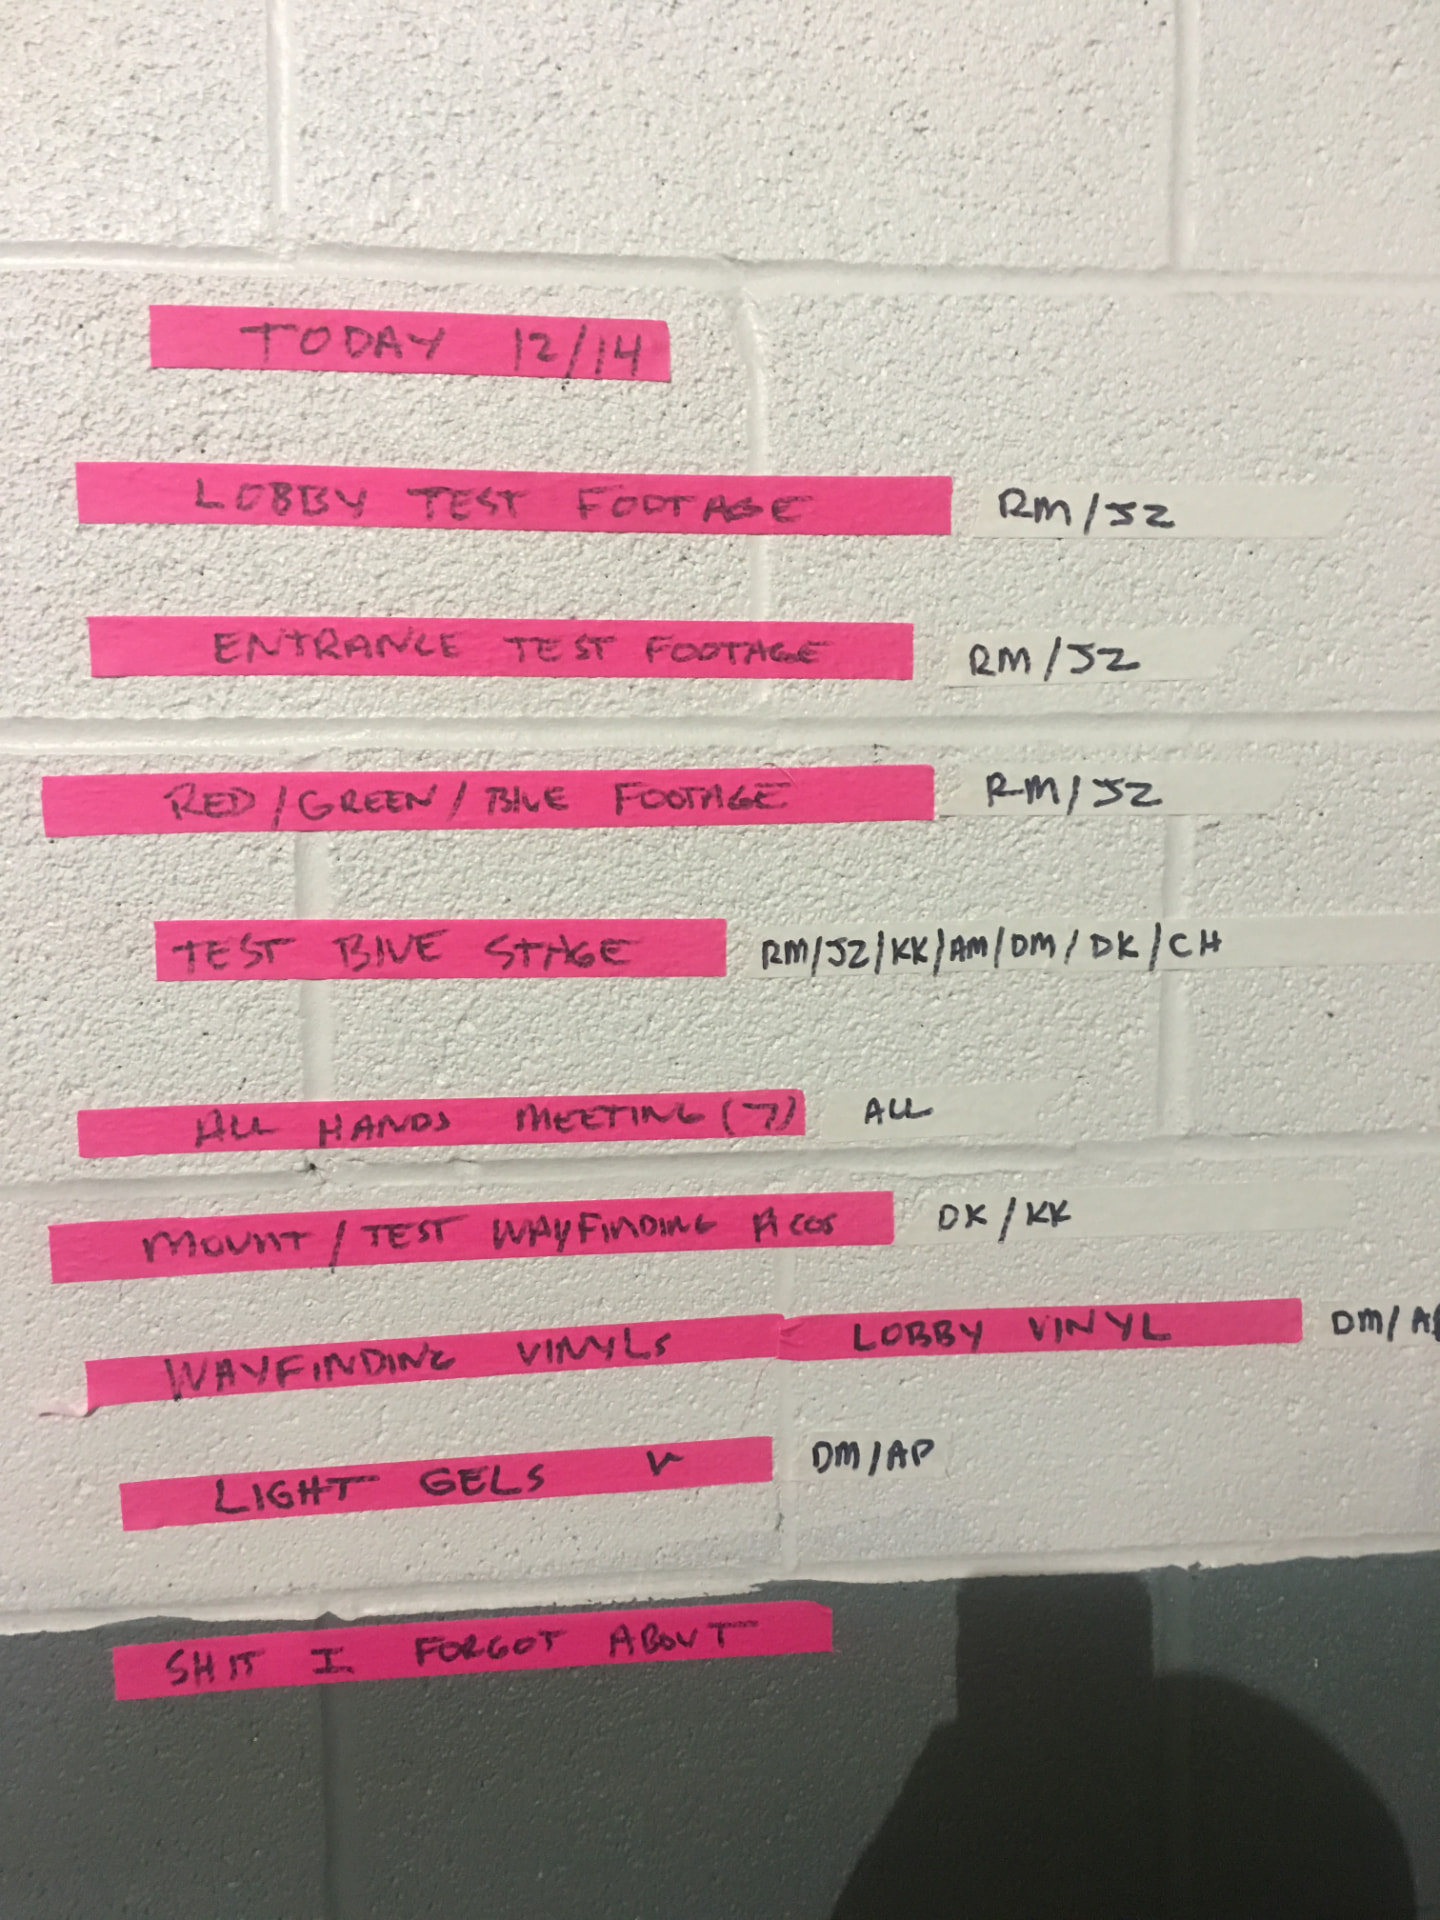 TODAY 12/14
LOBBY TEST FOOTAGE RM/JZ
ENTRANCE TEST FOOTAGE RM/JZ
RED/GREEN/BLUE FOOTAGE RM/JZ
TEST BLUE STAGE RM/JZ/KK/AM/DM/DK/CH
ALL HANDS MEETING (7) ALL
MOUNT/TEST WAYFINDING PICOS DK/KK
WAYFINDING VINYLS LOBBY VINYL DM/
LIGHT GELS DM/AP
SHIT I FORGOT ABOUT